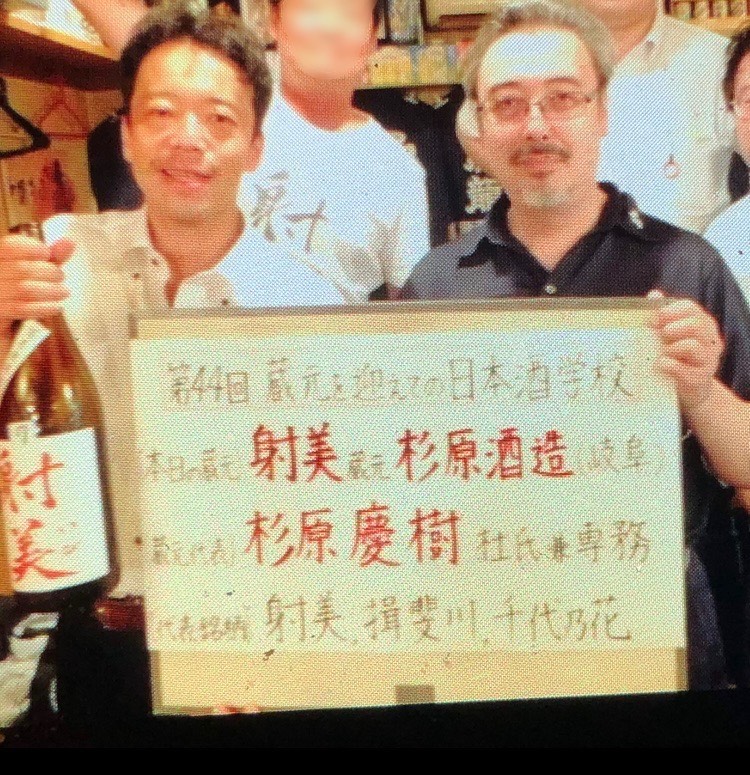 第44回 蔵元を迎えての日本酒学校
本日の蔵元 射美 蔵元 杉原酒造(岐阜)
蔵元代表) 杉原慶樹 杜氏兼専務
代表銘柄 射美、揖斐川、千代乃花
射美
射